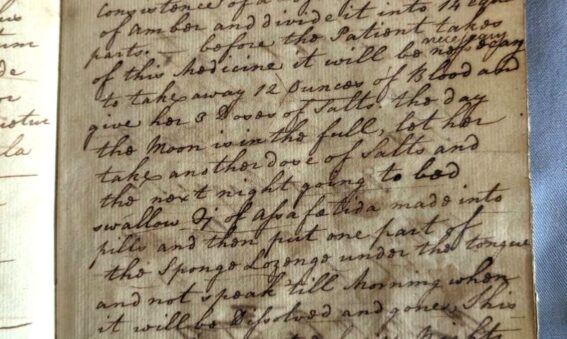 us
um
de
or
la
Consistence of a
of Amber and divide it into 14 equ
parts. — before the Patient takes
of this Medicine it will be necessary
to take away 12 Ounces of Blood and
give her 3 Doses of Salts, the day
the Moon is in the full, let her
take another dose of Salts and
the next night going to bed
swallow of Assafatida made into
pills and then put one part of
the Sponge Lozenge under the tongue
and not speak till Morning when
it will be Dissolved and gone. This
Nights